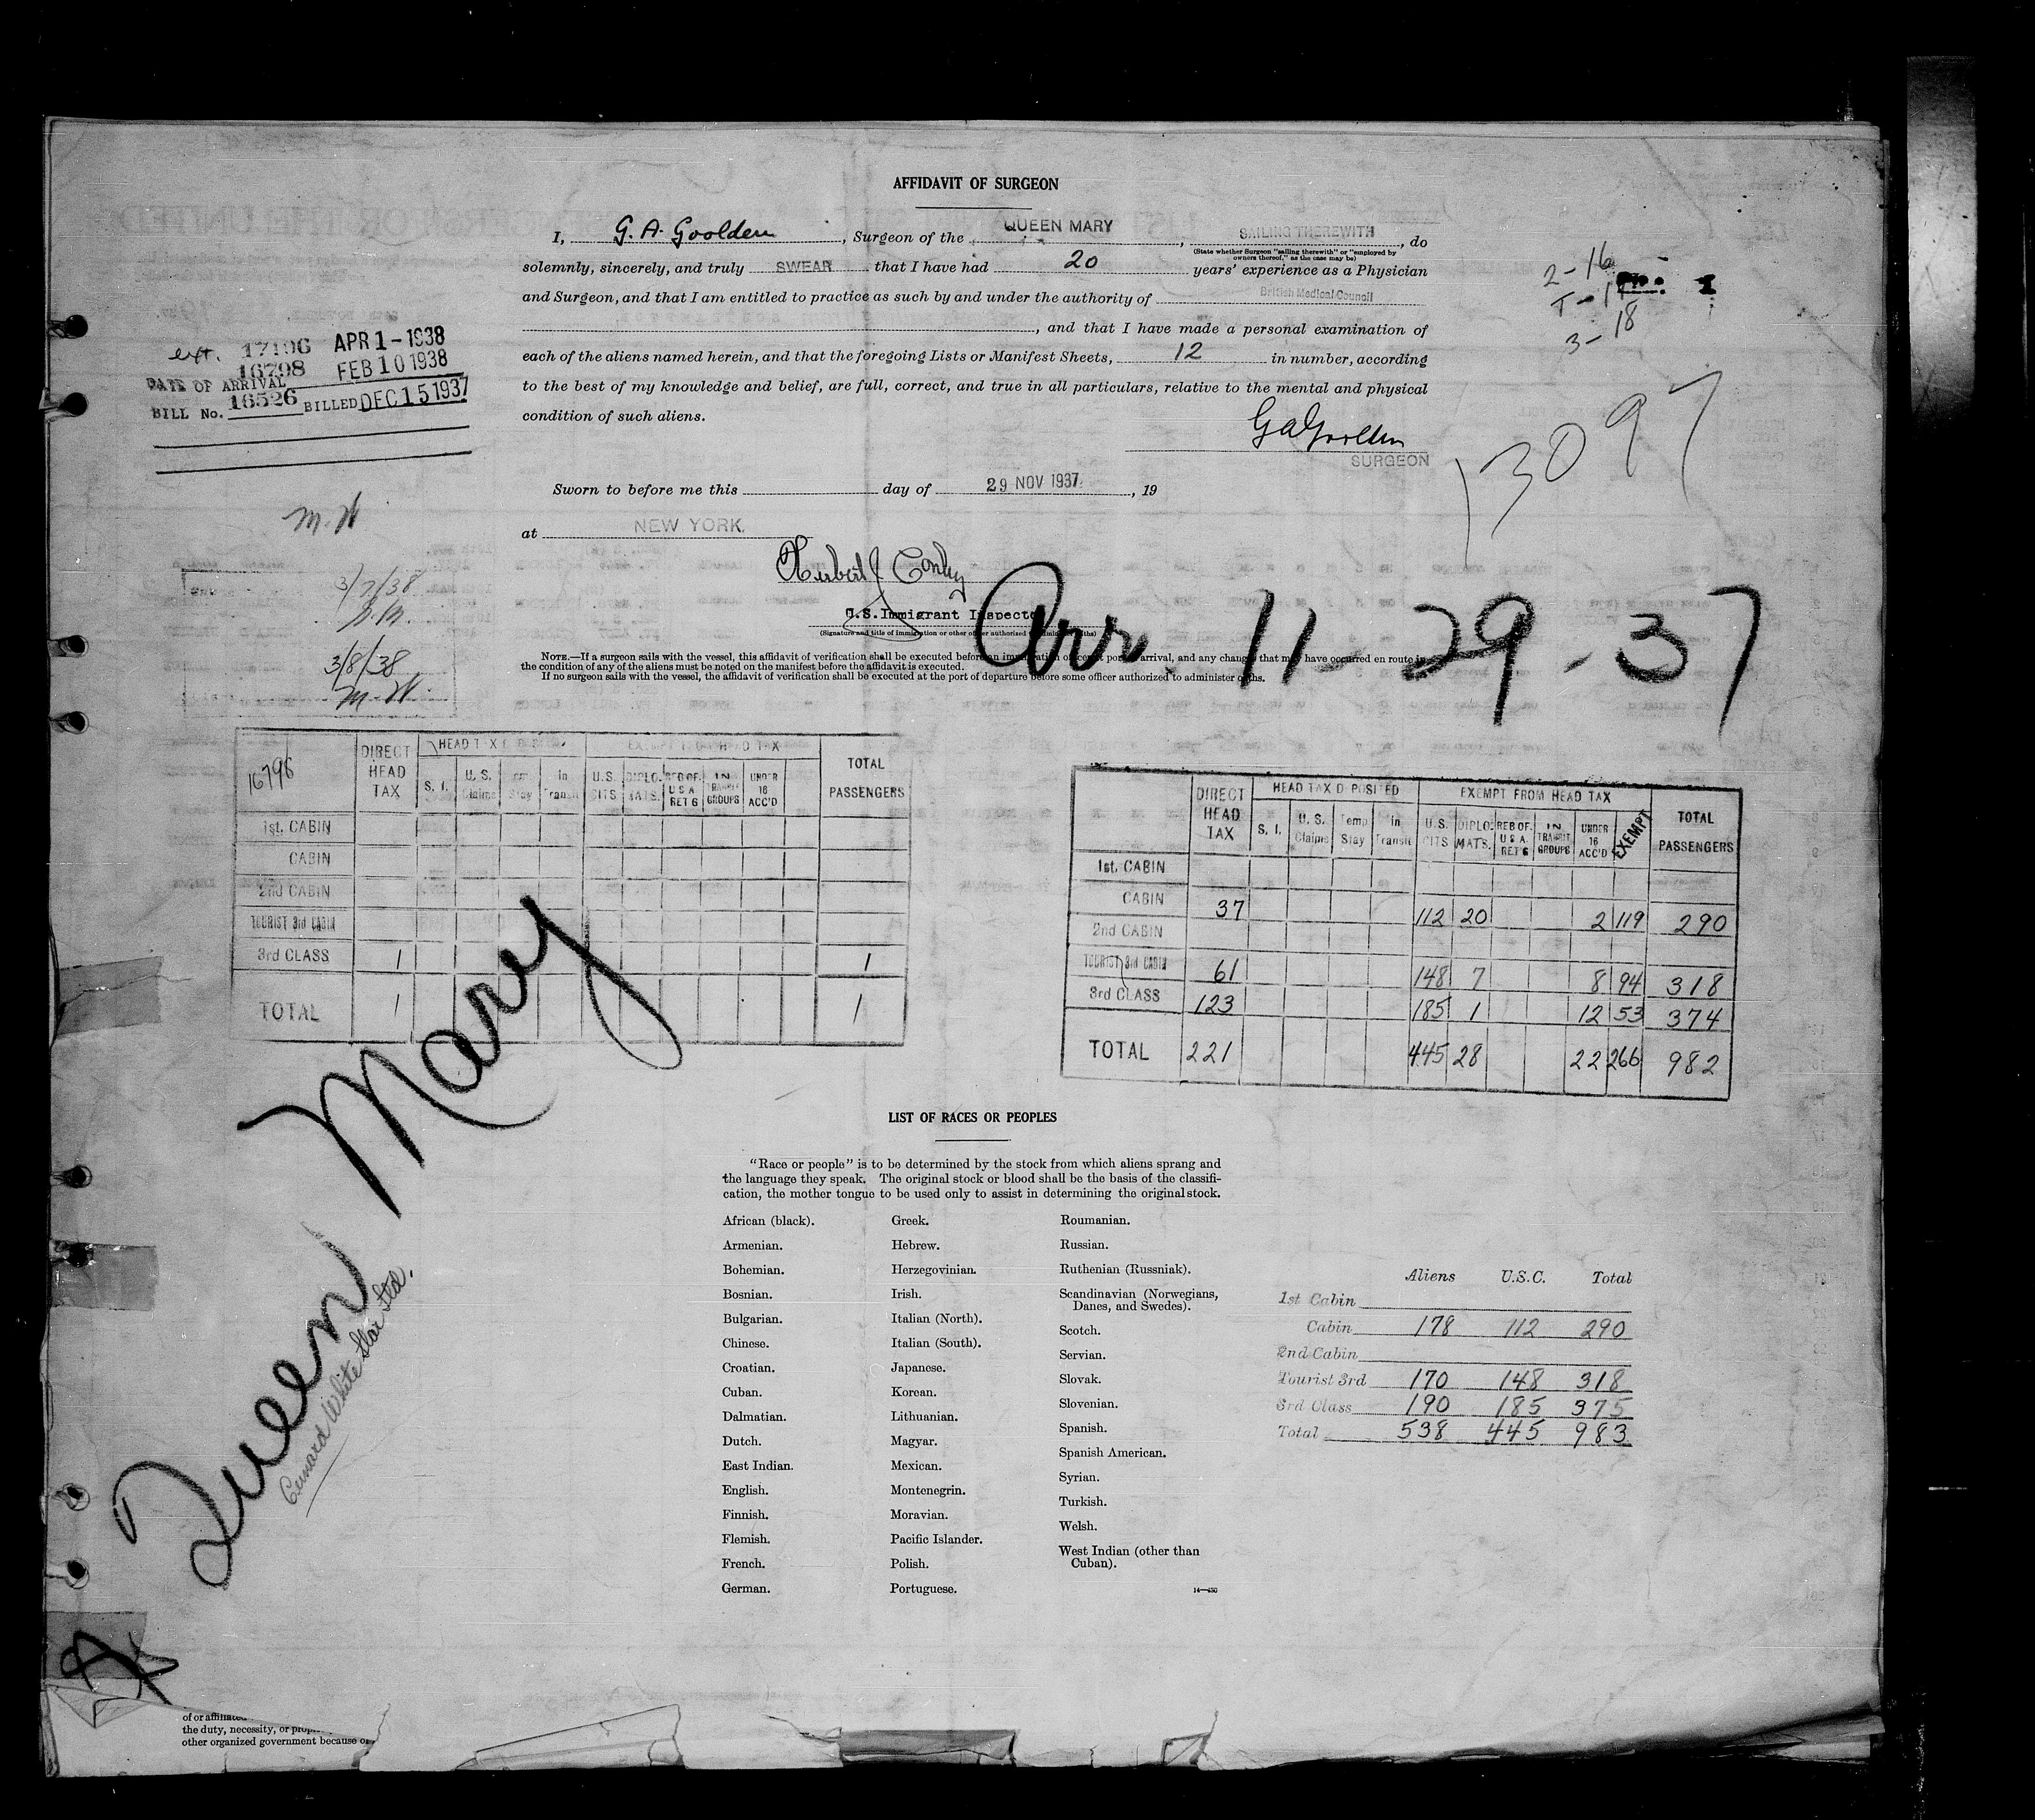 AFFIDAVIT OF SURGEON
I, G. A. Goolden, Surgeon of the QUEEN MARY, SAILING THEREWITH, do
(State whether Surgeon "sailing therewith" or "employed by
owners thereof," as the case may be)
solemnly, sincerely, and truly SWEAR that I have had 20 years' experience as a Physician
and Surgeon, and that I am entitled to practice as such by and under the authority of British Medical Council
, and that I have made a personal examination of
each of the aliens named herein, and that the foregoing Lists or Manifest Sheets, 12 in number, according
to the best of my knowledge and belief, are full, correct, and true in all particulars, relative to the mental and physical
condition of such aliens.
GAGoolden
SURGEON
Sworn to before me this day of 29 NOV 1937, 19
at NEW YORK.
Herbert J Conley
U.S. Immigrant Inspector
NOTE.—If a surgeon sails with the vessel, this affidavit of verification shall be executed before an immigration officer port arrival, and any change that may have occurred en route in
the condition of any of the aliens must be noted on the manifest before the affidavit is executed.
If no surgeon sails with the vessel, the affidavit of verification shall be executed at the port of departure before some officer authorized to administer oaths.
2-16
T-17
3-18
13097
ext. 17106 APR 1-1938
16798 FEB 10 1938
DATE OF ARRIVAL
BILL No. 16526 BILLED DEC 15 1937
M. W
3/7/38
3/8/38
M. W.
Arr. 11-29-37
16798
DIRECT HEAD TAX
HEAD TAX
S. I. U. S. Claims Stay in Transit
U.S. CITS DIPLO. MATS. REB OF. U S A RET'G IN TRANSIT GROUPS UNDER 16 ACC'D
TOTAL PASSENGERS
1st. CABIN
CABIN
2nd CABIN
TOURIST 3rd CABIN
3rd CLASS 1 1
TOTAL 1 1
DIRECT HEAD TAX
HEAD TAX D POSITED
EXEMPT FROM HEAD TAX
S. I. U. S. Claims Temp Stay in Transit
U.S. CITS DIPLO. MATS. REB OF. U S A. RET'G IN TRANSIT GROUPS UNDER 16 ACC'D EXEMPT
TOTAL PASSENGERS
1st. CABIN
CABIN 37 112 20 2 119 290
2nd CABIN
TOURIST 3rd CABIN 61 148 7 8 94 318
3rd CLASS 123 185 1 12 53 374
TOTAL 221 445 28 22 266 982
Queen Mary
Cunard White Star Ltd.
LIST OF RACES OR PEOPLES
"Race or people" is to be determined by the stock from which aliens sprang and
the language they speak. The original stock or blood shall be the basis of the classifi-
cation, the mother tongue to be used only to assist in determining the original stock.
African (black).
Armenian.
Bohemian.
Bosnian.
Bulgarian.
Chinese.
Croatian.
Cuban.
Dalmatian.
Dutch.
East Indian.
English.
Finnish.
Flemish.
French.
German.
Greek.
Hebrew.
Herzegovinian.
Irish.
Italian (North).
Italian (South).
Japanese.
Korean.
Lithuanian.
Magyar.
Mexican.
Montenegrin.
Moravian.
Pacific Islander.
Polish.
Portuguese.
Roumanian.
Russian.
Ruthenian (Russniak).
Scandinavian (Norwegians,
Danes, and Swedes).
Scotch.
Servian.
Slovak.
Slovenian.
Spanish.
Spanish American.
Syrian.
Turkish.
Welsh.
West Indian (other than
Cuban).
14—430
Aliens U.S.C. Total
1st Cabin
Cabin 178 112 290
2nd Cabin
Tourist 3rd 170 148 318
3rd Class 190 185 375
Total 538 445 983
of or affiliated
the duty, necessity, or
other organized government because